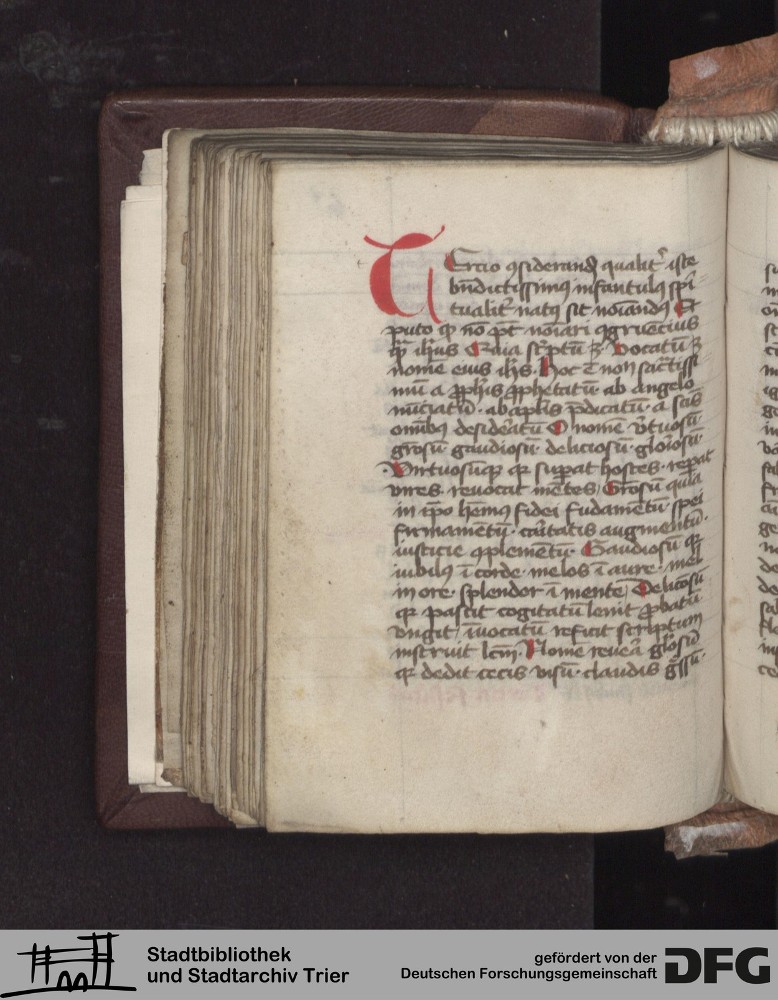 TErcio ꝯsiderandū qualit̄ iste
bn̄dictissimꝯ infantulꝯ spī
tualit̄ natꝯ sit noīandꝯ Et
puto ꝙ nō pōt noīari ꝯgruēcius
qͣ̄ ih̄us Quia sc̄ptū ē Vocatū ē
nomē eius ih̄s. Hoc ē non sāctissi
mū a ꝓph̄is ꝓphetatū. ab angelo
nūciatū. ab apl̄is p̄dicatū. a sc̄īs
omībꝯ desideratū O nomē v̄tuosū
grōsū gaudiosū. deliciosū. gloīosū.
Virtuosūqꝫ qꝛ suꝑat hostes. reꝑat
vires. reuocat mētes Grōsū quia
in ip̄o hēmꝯ fidei fūdamētū spei
firmamētū. cāitatis augmentū.
iusticie ꝯplementū. Gaudiosū qꝛ
iubilꝯ ī corde. melos ī aure. mel
in ore. splendor ī mente Delicosū
qꝛ pascit cogitatū lenit ꝓbatū
vngit īuocatū reficit scriptum
instruit lc̄m. Nomē reuēa glōsū
qꝛ dedit cecis visū. claudis ḡssū.
Stadtbibliothek
und Stadtarchiv Trier
gefördert von der
Deutschen Forschungsgemeinschaft
DFG